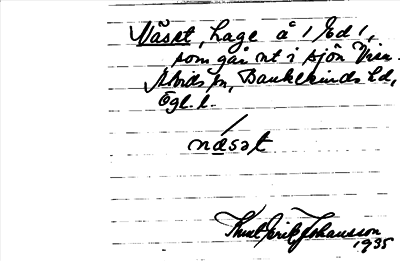 Näset, hage å 1/Ed 1,
som går ut i sjön Vin.
Ulvids sn, Bankekinds hd,
Ögl. l.
næsət
Knut Erik Johansson
1935